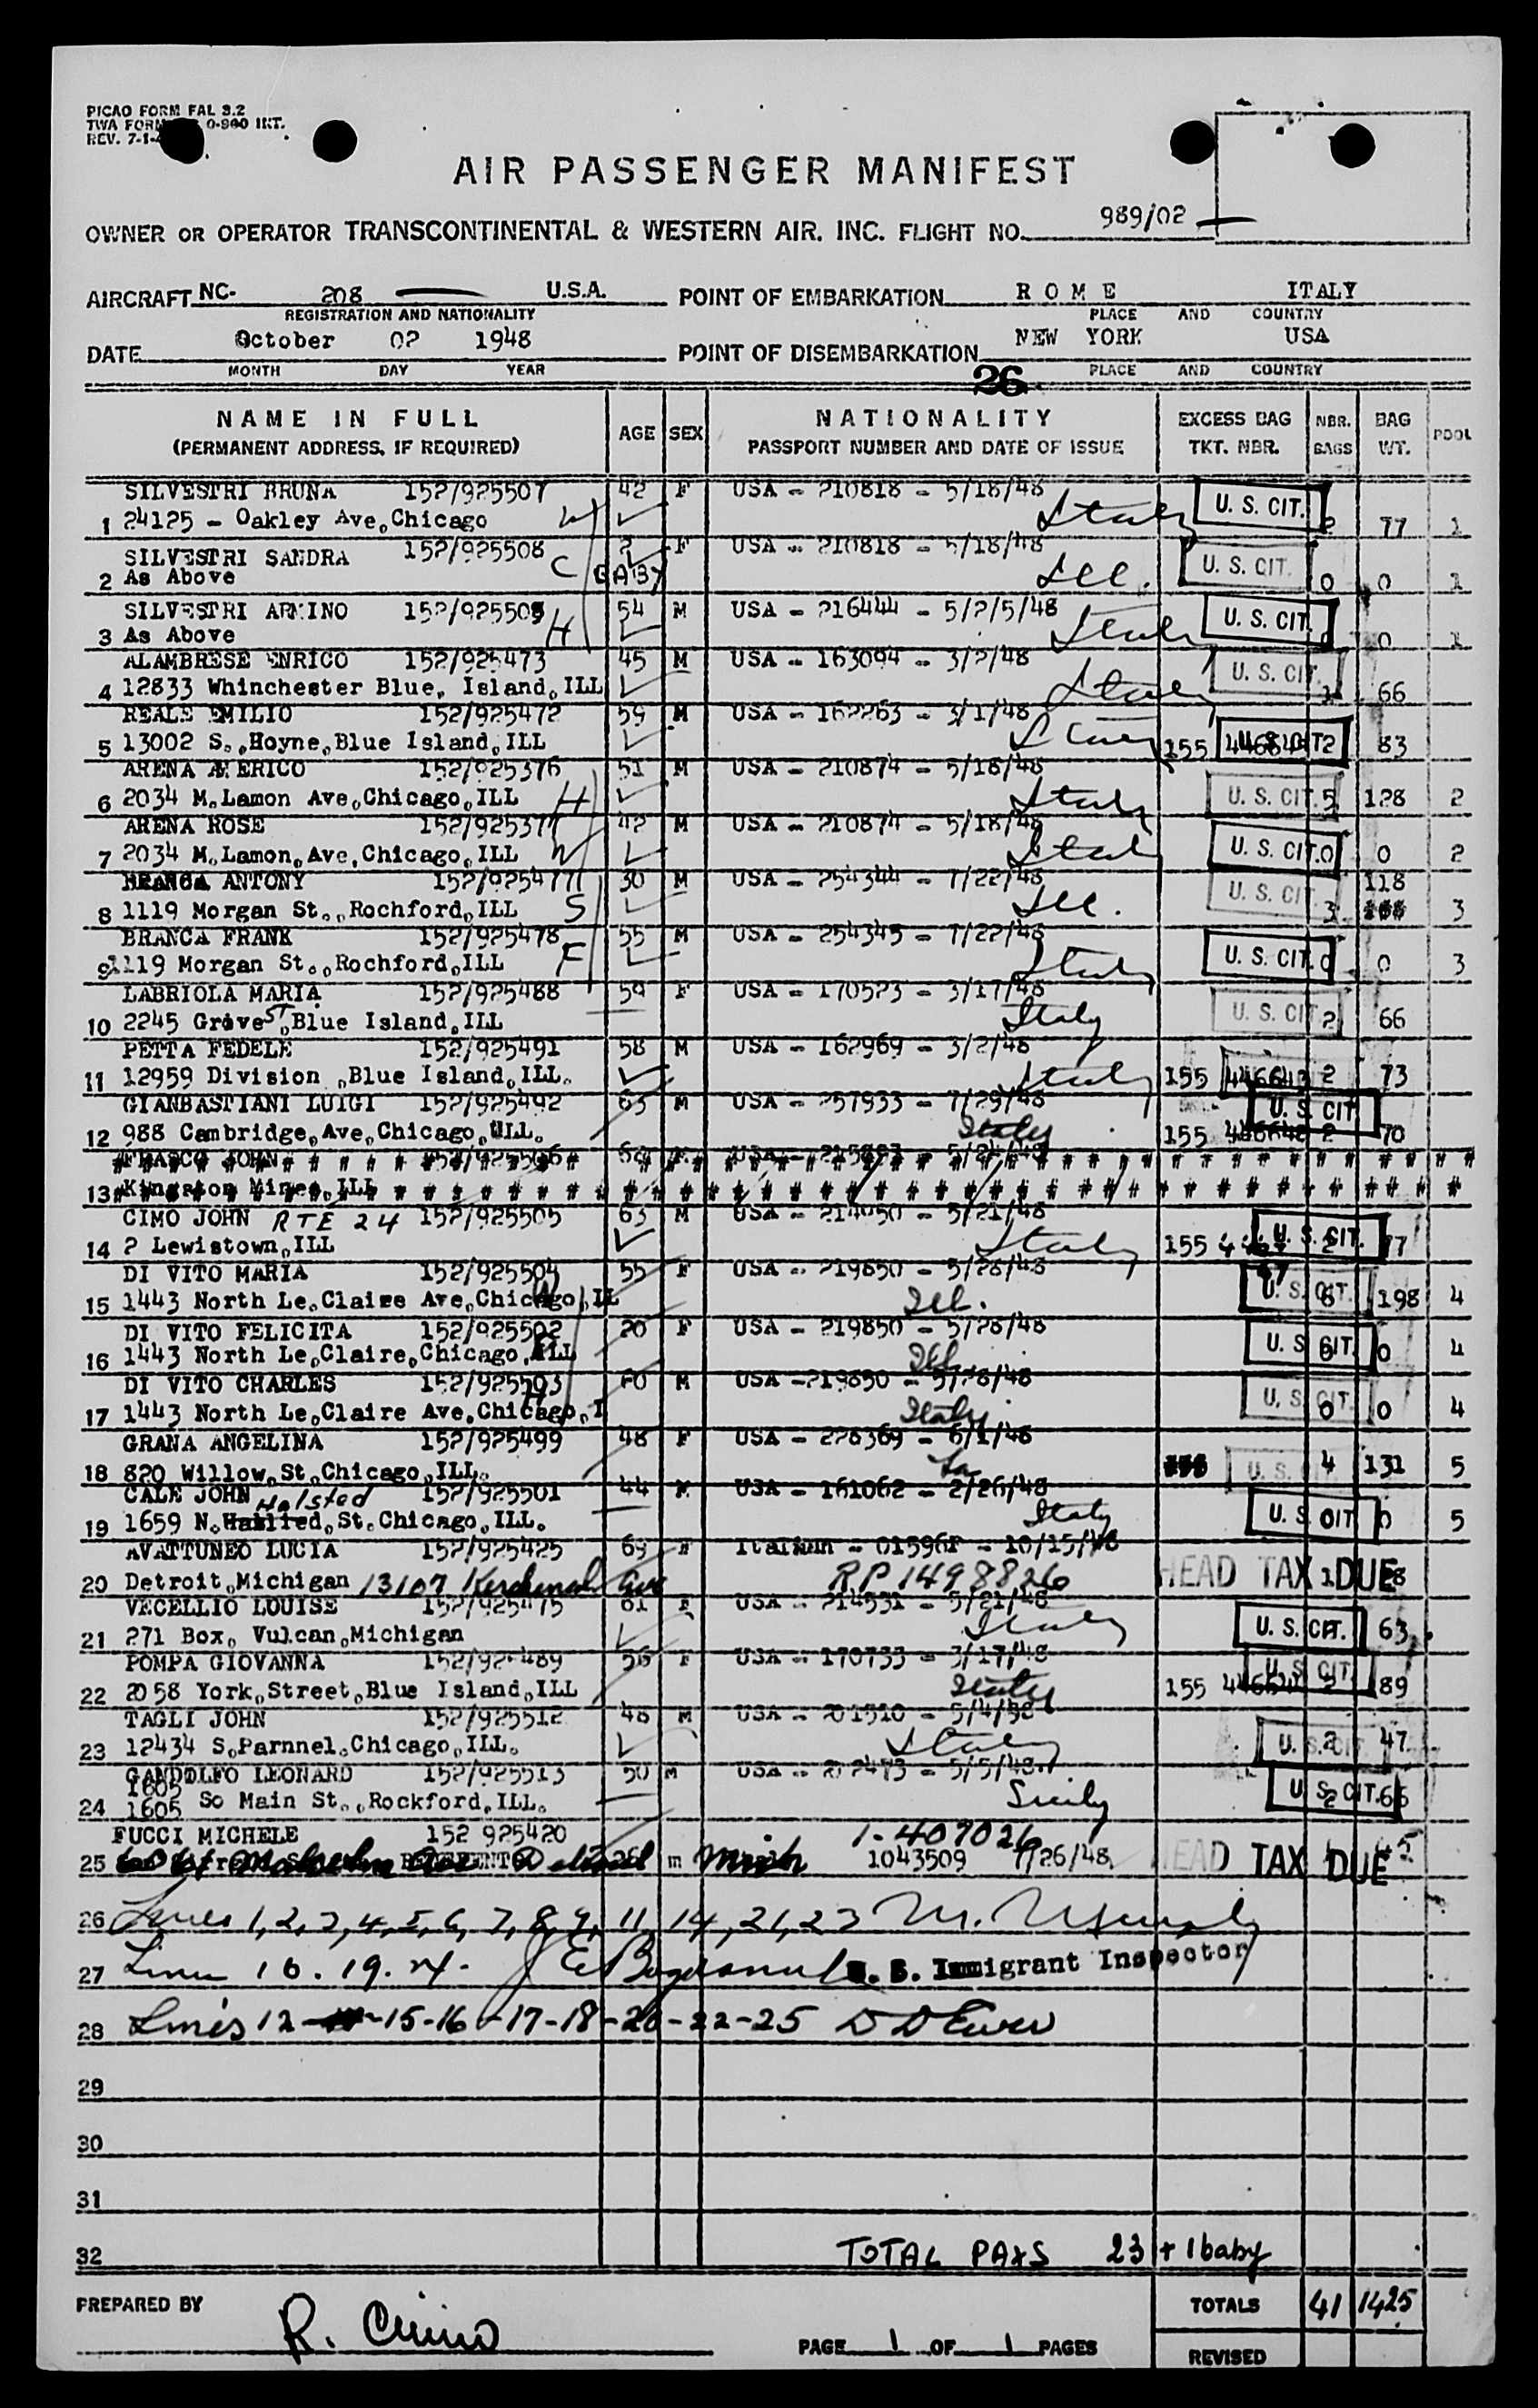 PICAO FORM FAL 3.2
TWA FORM 0-900 INT.
REV. 7-1-4
AIR PASSENGER MANIFEST
OWNER OR OPERATOR TRANSCONTINENTAL & WESTERN AIR. INC. FLIGHT NO. 989/02
AIRCRAFT NC- 208 U.S.A. POINT OF EMBARKATION R O M E ITALY
REGISTRATION AND NATIONALITY PLACE AND COUNTRY
DATE October 02 1948 POINT OF DISEMBARKATION NEW YORK USA
MONTH DAY YEAR 26 PLACE AND COUNTRY
NAME IN FULL AGE SEX NATIONALITY EXCESS BAG NBR. BAG POOL
(PERMANENT ADDRESS, IF REQUIRED) PASSPORT NUMBER AND DATE OF ISSUE TKT. NBR. BAGS WT.
SILVESTRI BRUNA 152/925507 42 F USA - 210818 - 5/18/48
1 24125 - Oakley Ave, Chicago W Italy U. S. CIT. 2 77 1
SILVESTRI SANDRA 152/925508 2 F USA - 210818 - 5/18/48
2 As Above C BABY Ill. U. S. CIT. 0 0 1
SILVESTRI ARMINO 152/925509 54 M USA - 216444 - 5/2/5/48
3 As Above H Italy U. S. CIT. 0 1
ALAMBRESE ENRICO 152/925473 45 M USA - 163094 - 3/2/48
4 12833 Whinchester Blue, Island, ILL Italy U. S. CIT. 66
REALE EMILIO 152/925472 59 M USA - 162263 - 3/1/48
5 13002 S., Hoyne, Blue Island, ILL Italy 155 U. S. CIT. 2 83
ARENA AMERICO 152/925376 51 M USA - 210874 - 5/18/48
6 2034 M. Lamon Ave, Chicago, ILL H Italy U. S. CIT. 5 128 2
ARENA ROSE 152/925377 42 M USA - 210874 - 5/18/48
7 2034 M. Lamon, Ave, Chicago, ILL W Italy U. S. CIT. 0 0 2
BRANCA ANTONY 152/925477 30 M USA - 254344 - 7/22/48 118
8 1119 Morgan St., Rochford, ILL S Ill. U. S. CIT. 3 3
BRANCA FRANK 152/925478 55 M USA - 254345 - 7/22/48
9 1119 Morgan St., Rochford, ILL F Italy U. S. CIT. 0 0 3
LABRIOLA MARIA 152/925488 59 F USA - 170523 - 3/17/48
10 2245 Grove ST, Blue Island, ILL Italy U. S. CIT. 2 66
PETTA FEDELE 152/925491 58 M USA - 162969 - 3/2/48
11 12959 Division , Blue Island, ILL. Italy 155 446643 2 73
GIANBASTIANI LUIGI 152/925492 63 M USA - 257933 - 7/29/48 U. S. CIT.
12 988 Cambridge, Ave, Chicago, ILL. Italy 155 2 70
FRASCO JOHN
13 Kingston Mines, ILL
CIMO JOHN RTE 24 152/925505 63 M USA - 214950 - 5/21/48
14 2 Lewistown, ILL Italy 155 U. S. CIT. 77
DI VITO MARIA 152/925504 55 F USA - 219850 - 5/28/48
15 1443 North Le. Claire Ave, Chicago, IL Ill. U. S. CIT. 198 4
DI VITO FELICITA 152/925502 20 F USA - 219850 - 5/28/48
16 1443 North Le. Claire, Chicago, ILL Ill. U. S. CIT. 0 0 4
DI VITO CHARLES 152/925503 60 M USA -219850 - 5/28/48
17 1443 North Le. Claire Ave. Chicago, I Italy U. S. CIT. 0 0 4
GRANA ANGELINA 152/925499 48 F USA - 228369 - 6/1/48
18 820 Willow, St, Chicago, ILL. La U. S. 4 131 5
CALE JOHN Halsted 152/925501 44 M USA - 161062 - 2/26/48
19 1659 N. St. Chicago, ILL. Italy U. S. CIT. 0 5
AVATTUNEO LUCIA 152/925425 69 Italian - 01596P - 10/15/48
20 Detroit, Michigan 13107 Kercheval Ave RP 1498826 HEAD TAX DUE 1
VECELLIO LOUISE 152/925475 61 F USA - 214531 - 5/21/48
21 271 Box, Vulcan, Michigan Italy U. S. CIT. 63
POMPA GIOVANNA 152/925489 56 F USA - 170733 - 3/17/48
22 2058 York, Street, Blue Island, ILL Italy 155 U. S. CIT. 2 89
TAGLI JOHN 152/925512 48 M USA - 201510 - 5/4/98
23 12434 S. Parnnel, Chicago, ILL. Italy U. S. CIT. 2 47
GANDOLFO LEONARD 152/925513 50 M USA - 202473 - 5/5/48
1605
24 1605 So Main St., Rockford, ILL. Sicily U. S. CIT. 2 66
FUCCI MICHELE 152 925420 1-407026
25 Detroit m Mich 1043509 7/26/48 HEAD TAX DUE
26 Lines 1,2,3,4,5,6,7,8,9,11,14,21,23 M.
27 Lines 10. 19. 24. J E U. S. Immigrant Inspector
28 Lines 12 -15-16-17-18-20-22-25 D D
29
30
31
32 TOTAL PAXS 23 + 1 baby
PREPARED BY R. Cimino TOTALS 41 1425
PAGE 1 OF 1 PAGES REVISED